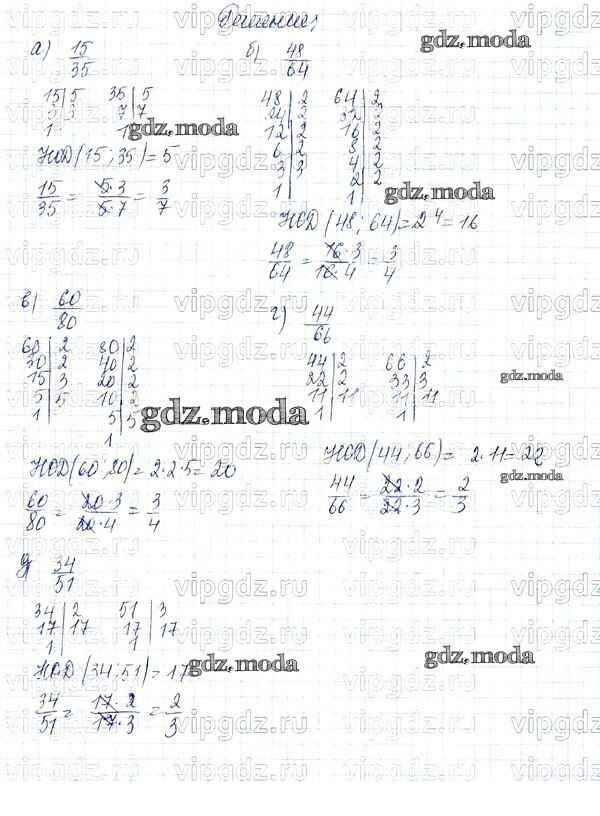 Решение:
а) 15/35
15|5 35|5
3|3 7|7
1| 1|
НОД(15; 35)=5
15/35 = 5·3/5·7 = 3/7
б) 48/64
48|2 64|2
24|2 32|2
12|2 16|2
6|2 8|2
3|3 4|2
1| 2|2
1|
НОД(48; 64)=2⁴=16
48/64 = 16·3/16·4 = 3/4
в) 60/80
60|2 80|2
30|2 40|2
15|3 20|2
5|5 10|2
1| 5|5
1|
НОД(60; 20)=2·2·5=20
60/80 = 20·3/20·4 = 3/4
г) 44/66
44|2 66|2
22|2 33|3
11|11 11|11
1| 1|
НОД(44; 66)= 2·11=22
44/66 = 22·2/22·3 = 2/3
д) 34/51
34|2 51|3
17|17 17|17
1| 1|
НОД(34; 51)=17
34/51 = 17·2/17·3 = 2/3
gdz.moda
gdz.moda
gdz.moda
gdz.moda
gdz.moda
gdz.moda
gdz.moda
gdz.moda
vipgdz.ru